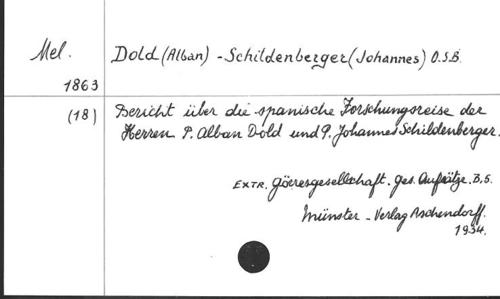 Mel. Dold (Alban) - Schildenberger (Johannes) O.S.B.
1863
(18) Bericht über die spanische Forschungsreise der
Herren P. Alban Dold und P. Johannes Schildenberger.
EXTR. Görresgesellschaft. Ges. Aufsätze. B, 5.
Münster - Verlag Aschendorff.
1934.